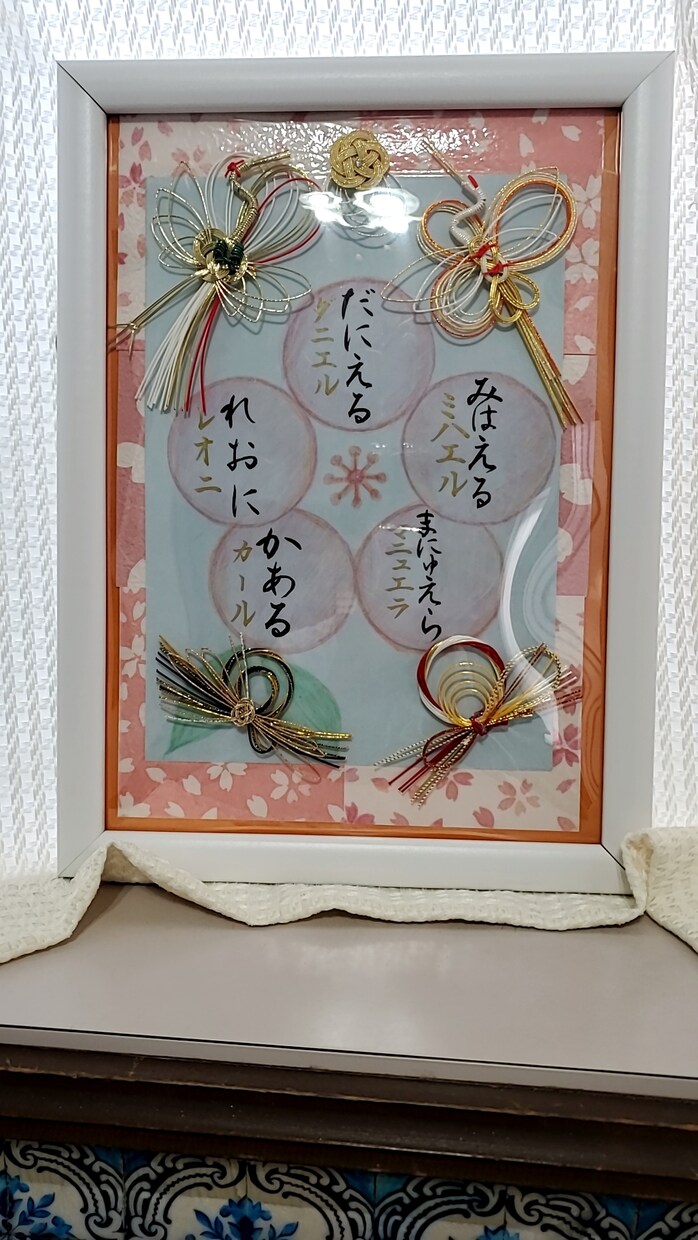 だにえる
ダニエル
みはえる
ミハエル
まにゅえら
マニュエラ
かある
カール
れおに
レオニ